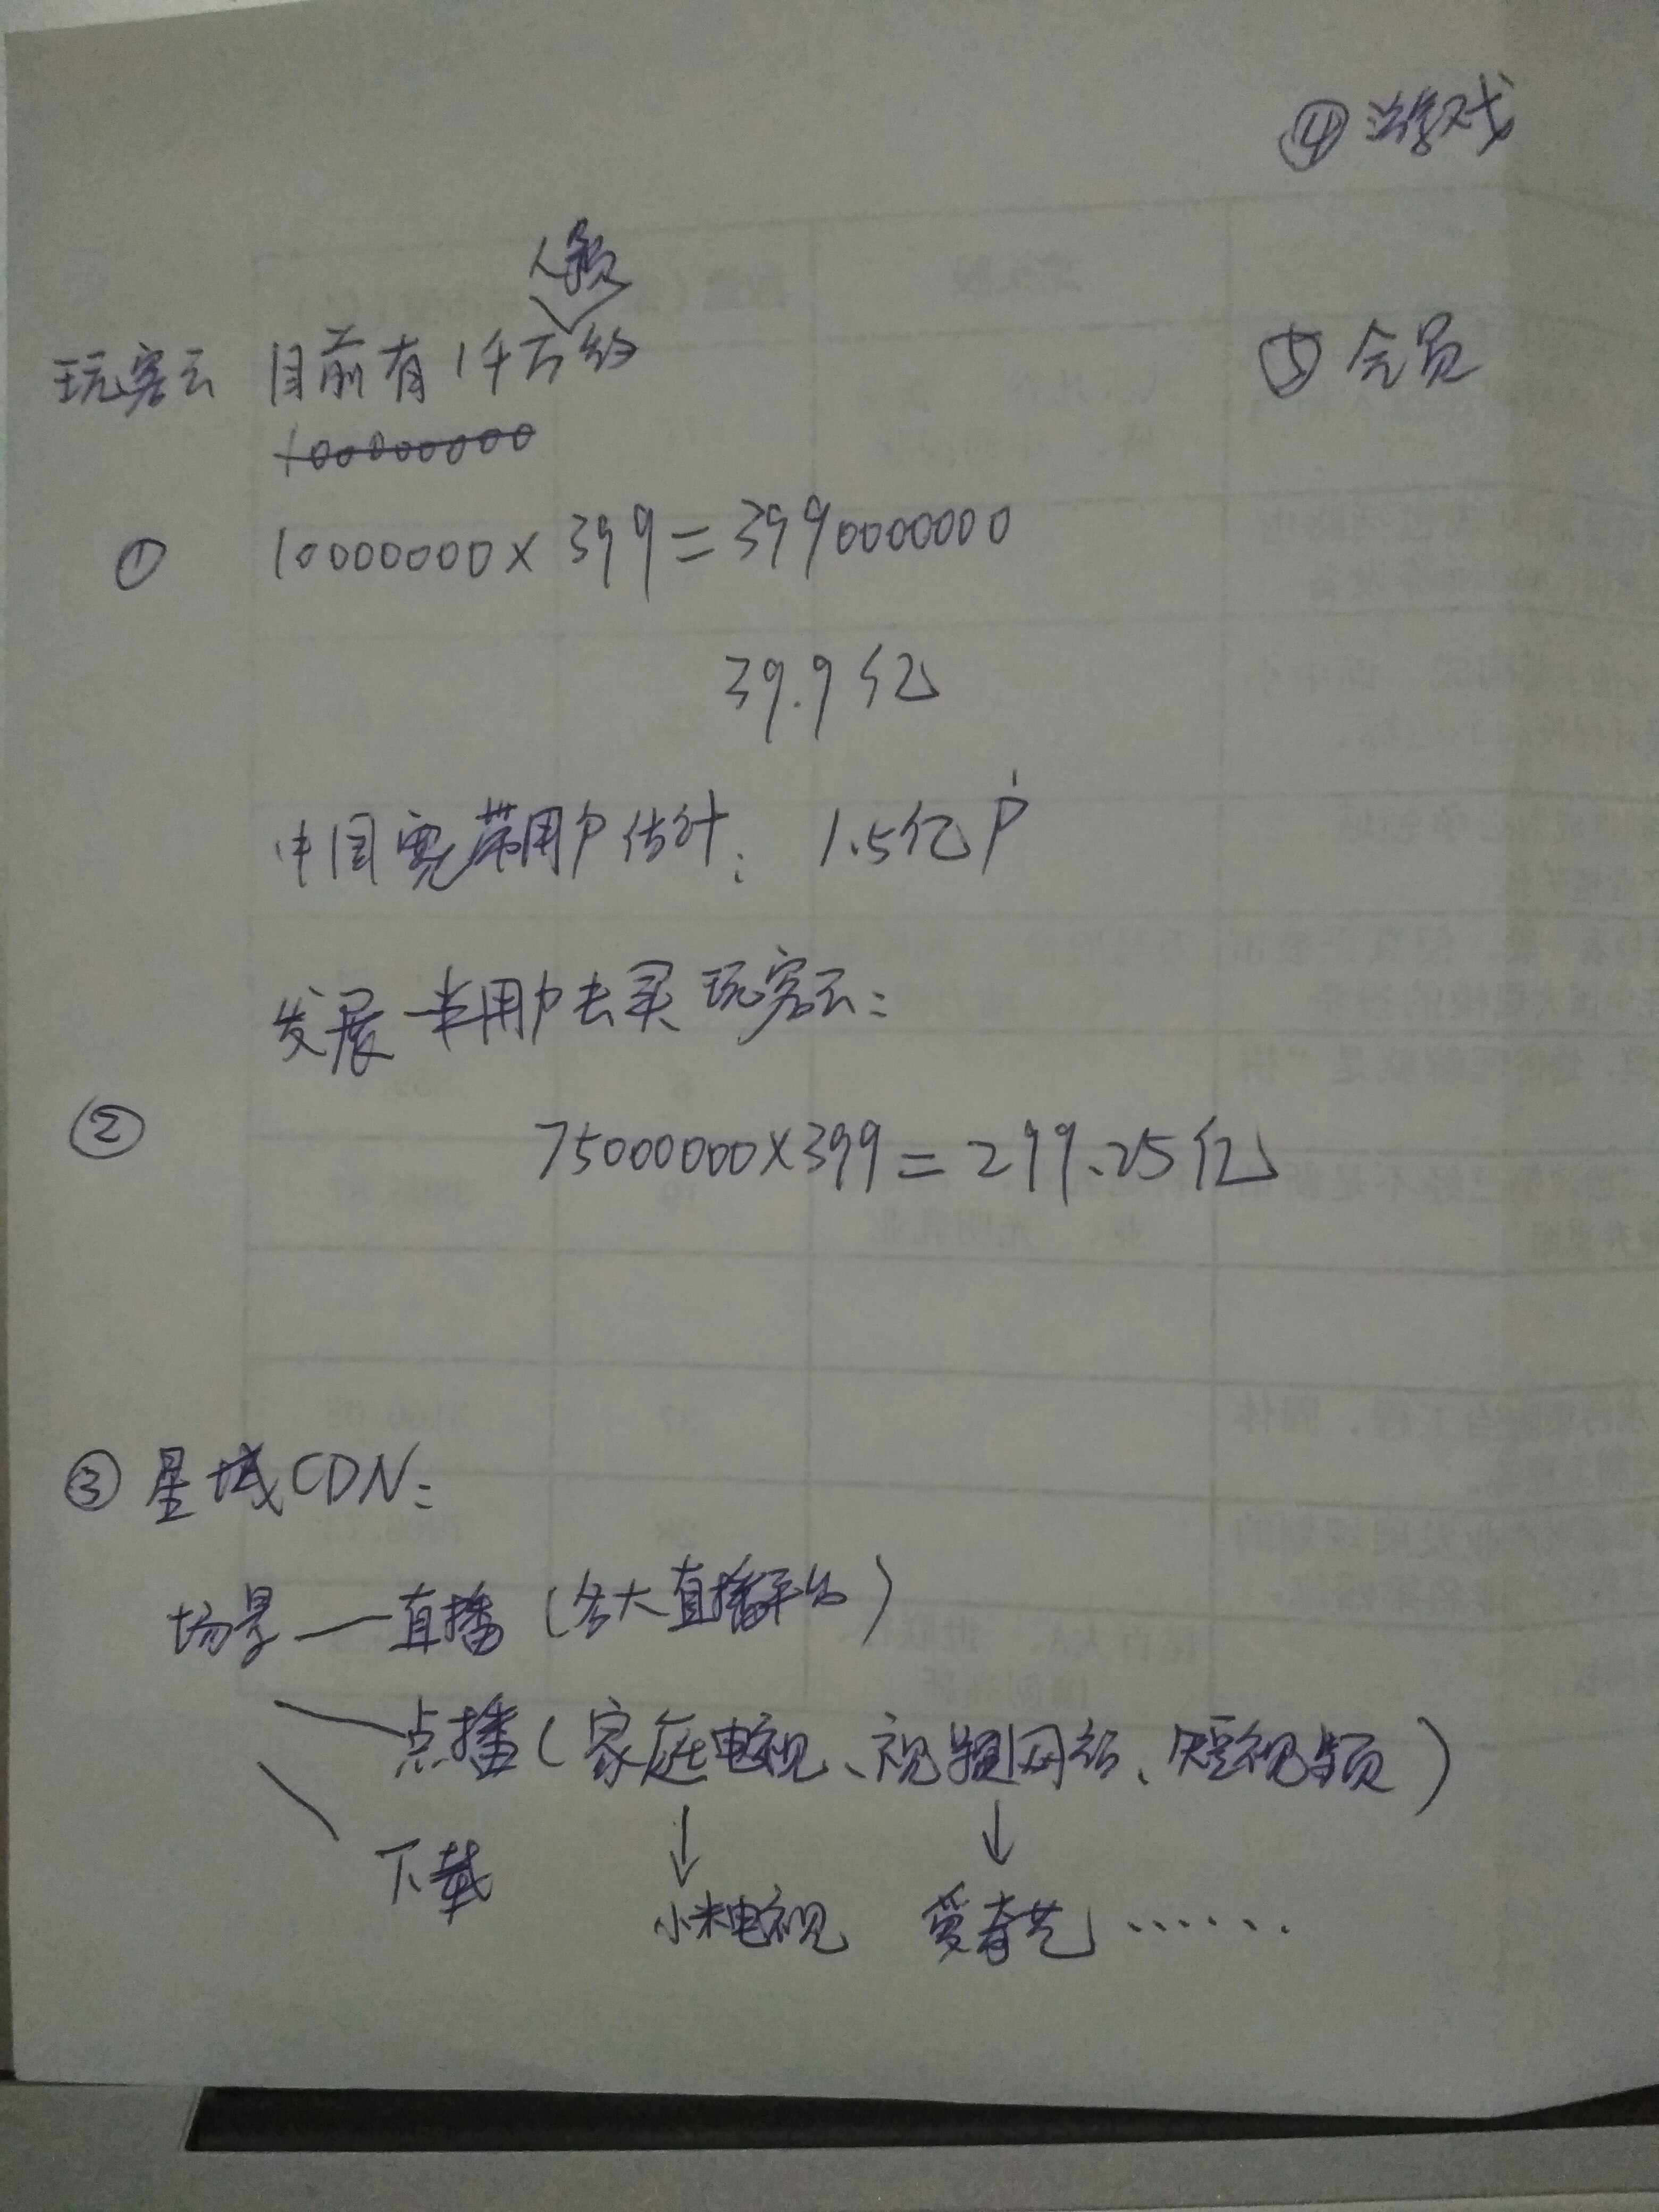 ④ 游戏
人预
玩客云 目前有1千万约
100000000
⑤ 会员
① 10000000×399=3990000000
39.9亿
中国宽带用户估计：1.5亿户
发展一半用户去买玩客云：
② 75000000×399=299.25亿
③ 星域CDN：
场景—直播（各大直播平台）
点播（家庭电视、视频网站、短视频）
↓ ↓
下载 小米电视 爱奇艺……